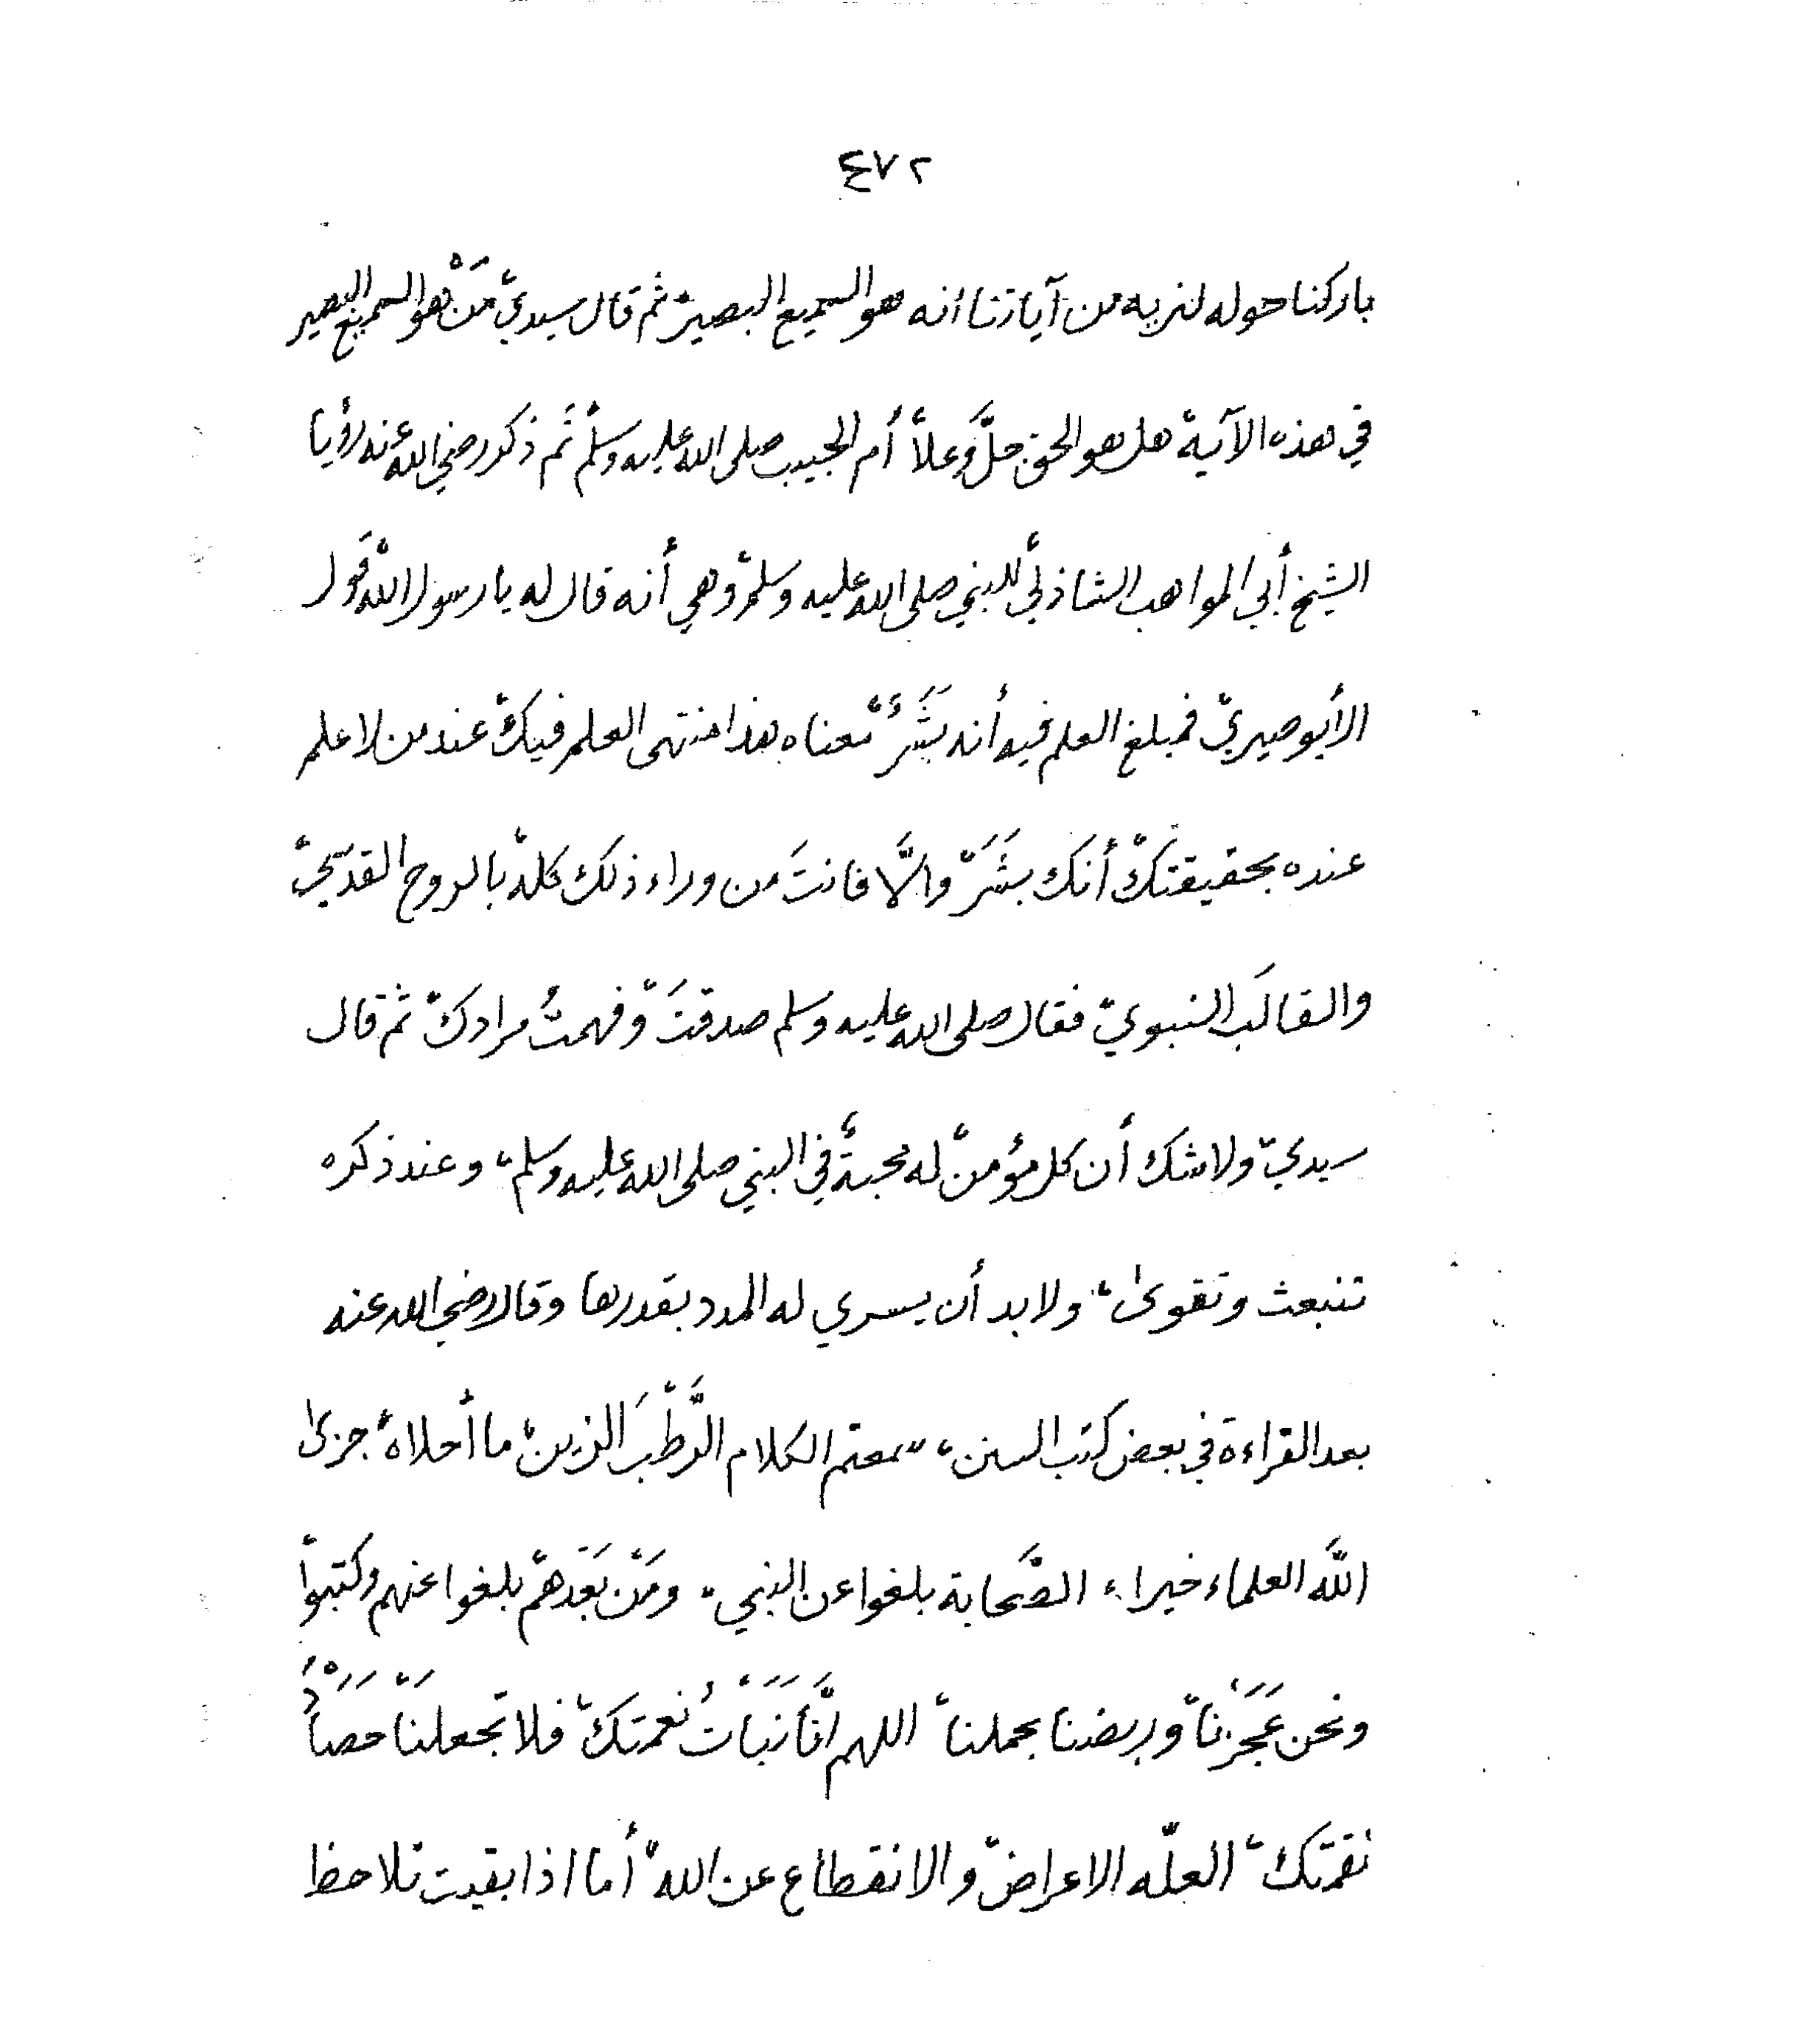 ٤٧٢
باركنا حوله لنريه من آياتنا انه هو السميع البصير، ثم قال سيدي، مَنْ هو السميع البصير
في هذه الآية، هل هو الحق جلَّ وعلا، أم الحبيب صلى الله عليه وسلم، ثم ذكر رضي الله عنه رؤيا
الشيخ أبي المواهب الشاذليِّ للنبي صلى الله عليه وسلم، وهي أنه قال له يا رسول الله، قول
الأبوصيري، فمبلغ العلم فيه أنه بَشَرٌ، معناه هذا منتهى العلم فيك، عند من لا علم
عنده بحقيقتك، أنك بشَرَ، والَّا فانتَ من وراء ذلك كله، بالروح القدسي،
والقالَب النبوي، فقال صلى الله عليه وسلم صدقتَ، وفهمتُ مرادك، ثم قال
سيدي، ولا شك أن كل مؤمن، له محبةٌ في النبي صلى الله عليه وسلم، وعند ذكره
تنبعث وتقوىٰ، ولا بد أن يسري له المدد بقدرها وقال رضي الله عنه
بعد القراءة في بعض كتب السنن، سمعتم الكلام الرَّطْبَ الزين، ما أحلاه، جزىٰ
اللَّه العلماء خيراء الصَّحابة بلغوا عن النبي، ومَنْ بَعْدَهم، بلغوا عنهم وكتبوا،
ونحن عَجَزْنا، وربضنا بحملنا، اللهم انَّا نَبَاتُ نعمتك، فلا تجعلنَا حَصَادُ
نقمتك، العلّه الاعراض، والانقطاع عن الله، أما اذا بقيت تلاحظ